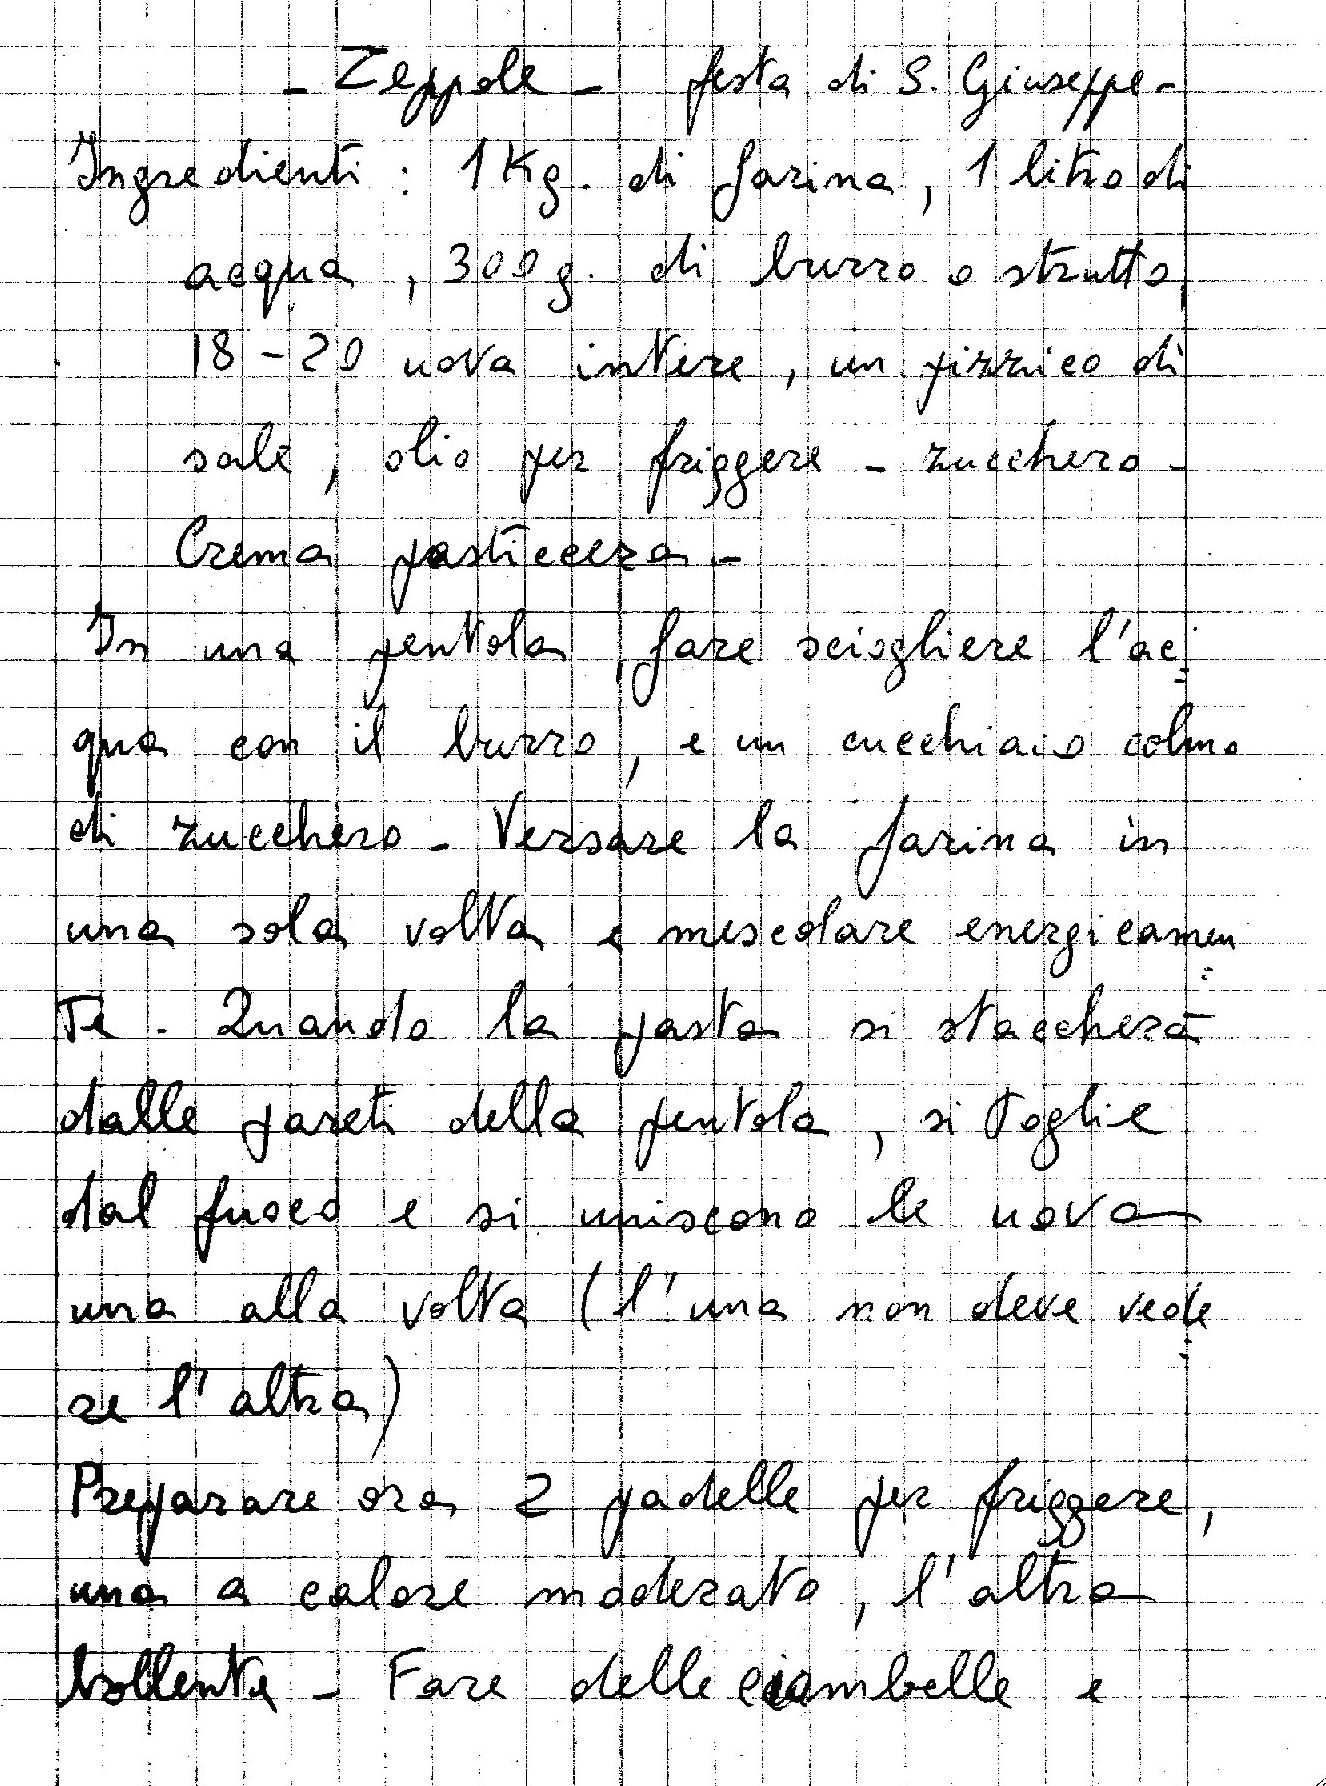 - Zeppole - festa di S. Giuseppe -
Ingredienti : 1 Kg. di farina, 1 litro di
acqua, 300 g. di burro o strutto,
18 - 20 uova intere, un pizzico di
sale, olio per friggere - zucchero -
Crema pasticcera -
In una pentola, fare sciogliere l'ac=
qua con il burro, e un cucchiaio colmo
di zucchero - Versare la farina in
una sola volta e mescolare energicamen=
te. Quando la pasta si staccherà
dalle pareti della pentola, si toglie
dal fuoco e si uniscono le uova
una alla volta (l'una non deve vede=
re l'altra)
Preparare ora 2 padelle per friggere,
una a calore moderato, l'altra
bollente - Fare delle ciambelle e